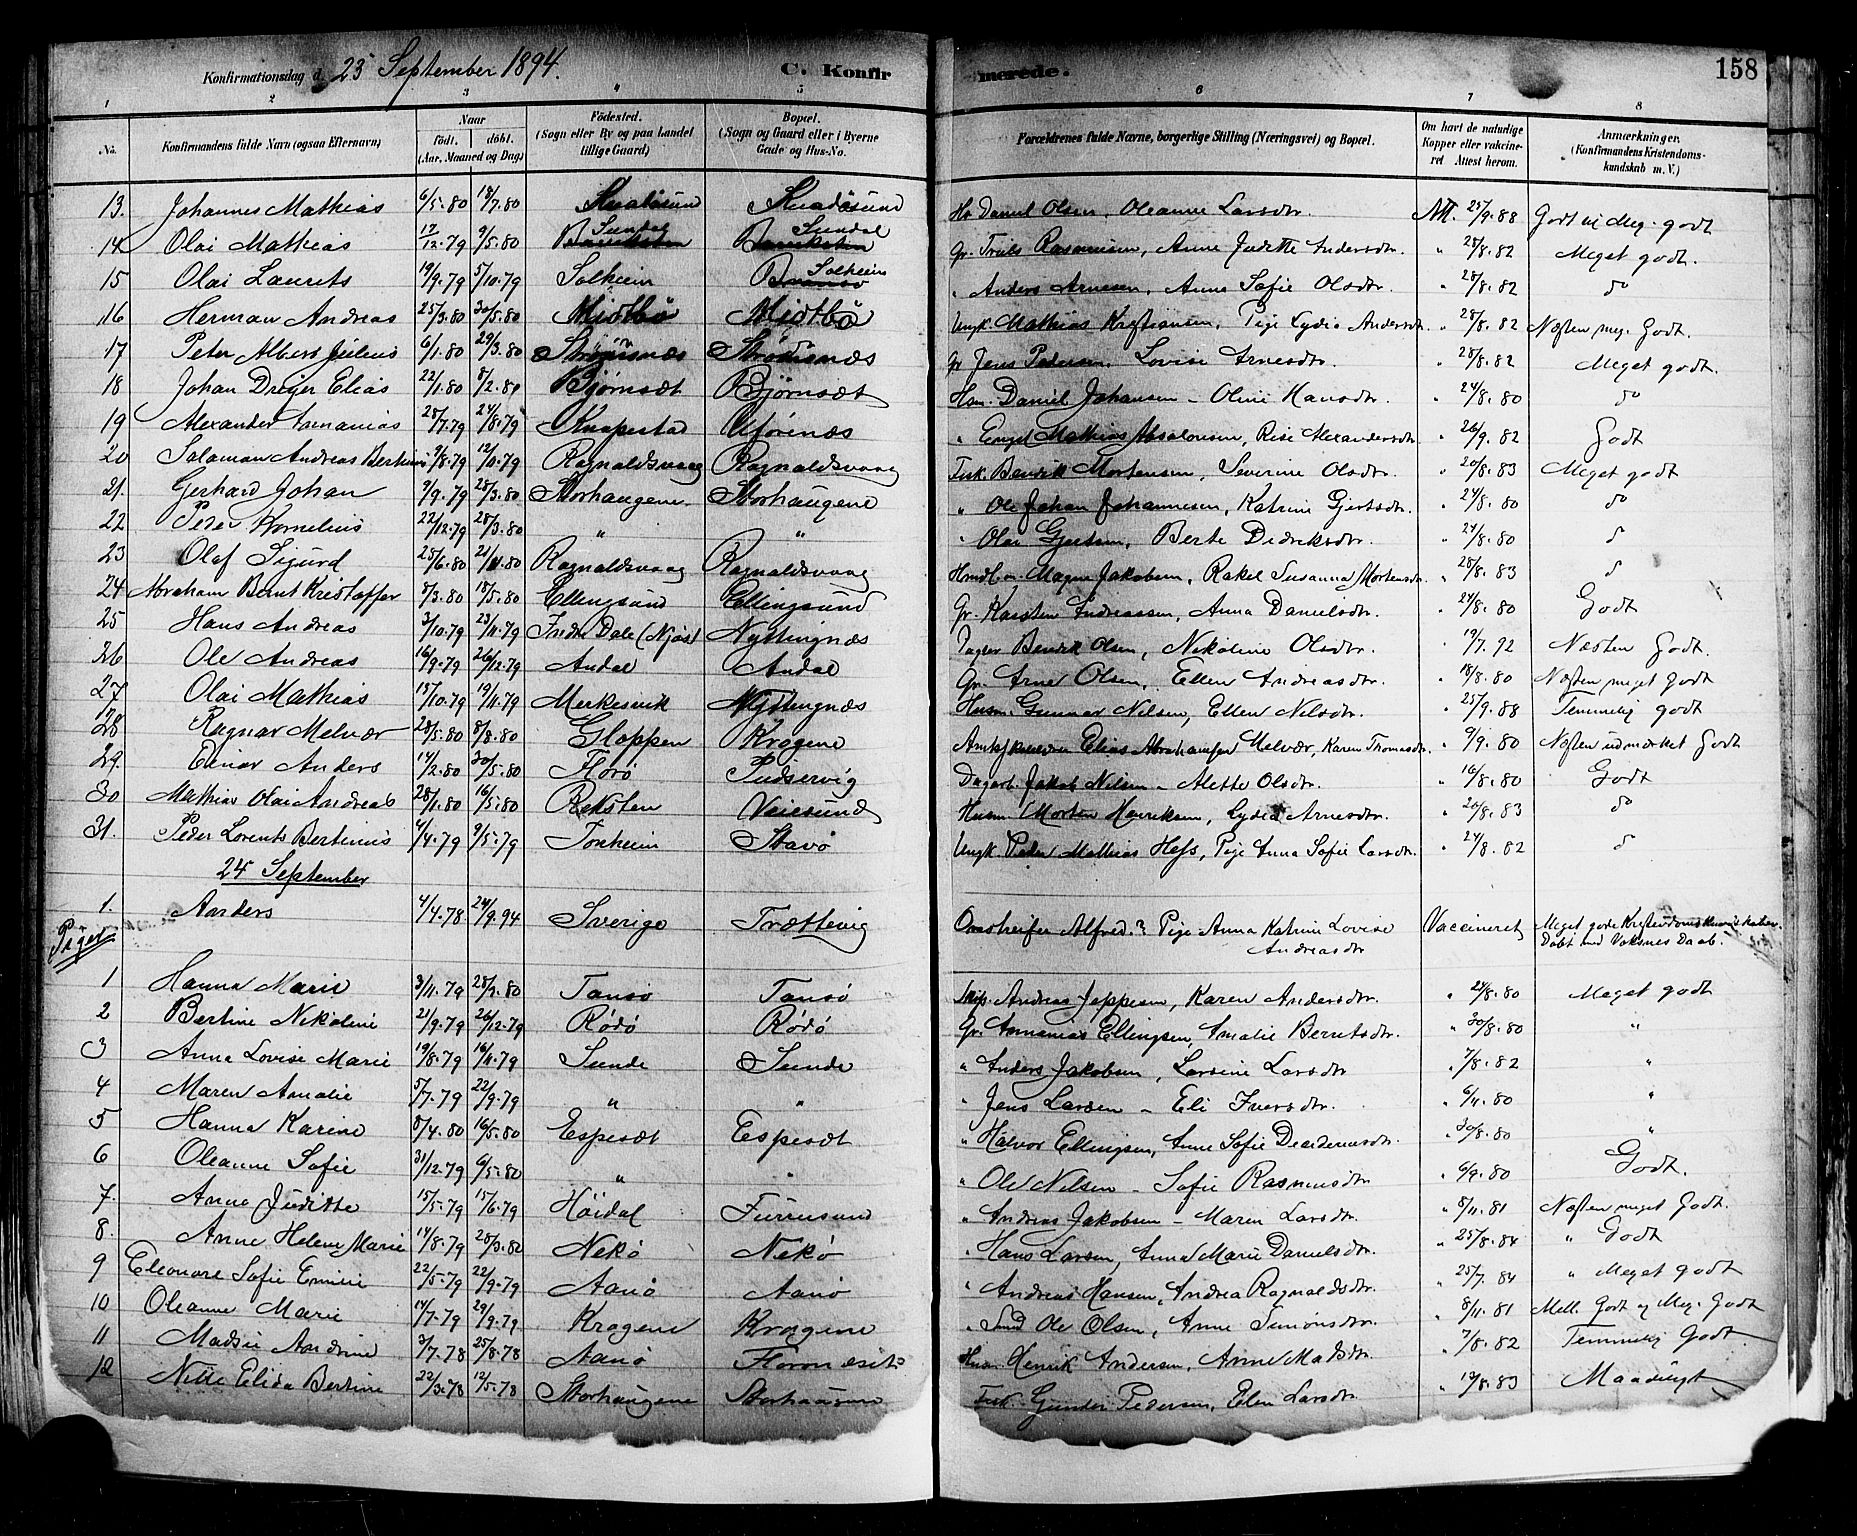 Konfirmationsdag d. 23 September 1894. C. Konfirmerede. 158
1 2 3 4 5 6 7 8
No. Konfirmandens fulde Navn (ogsaa Efternavn) Naar født. døbt. (Aar, Maaned og Dag) Fødested. (Sogn eller By og paa Landet tillige Gaard) Bopæl. (Sogn og Gaard eller i Byerne Gade og Hus-No. Forældrenes fulde Navne, borgerlige Stilling (Næringsvei) og Bopæl. Om havt de naturlige Kopper eller vaccineret Attest herom. Anmærkninger. (Konfirmandens Kristendomskundskab m. V.)
13. Johannes Mathias 6/5.80 18/7.80 Daniel Olsen, Oleanne Larsdtr. 25/9.88 Godt til Meg. godt
14 Olai Mathias 12/12.79 9/5.80 Sundal Sundal Gr. Truls Rasmussen, Anne Juditte Andersdtr. " 28/8.82 Meget godt.
15 Olai Laurits 19/9.79 5/10.79 Solheim Solheim " Anders Arnesen, Anne Sofie Olsdtr. " 28/8.82 do
16 Herman Andreas 25/3.80 30/5.80 Midtbø Midtbø Ungk. Mathias Kristiansen, Pige Lydia Andersdtr. " 28/8.82 Næsten meg. Godt.
17 Peter Albert Julius 6/1.80 29/3.80 Strømsnæs Strømsnæs Gr. Jens Pedersen, Lovise Arnesdtr. " 28/8.82 Meget godt.
18 Johan Dreyer Elias 22/1.80 8/2.80 Bjørnsæt Bjørnsæt Hsm. Daniel Johansen - Oline Hansdtr. " 24/8.80 do
19 Alexander Ananias 28/7.79 24/8.79 Knapestad Aførenæs " Engel Mathias Absalonsen, Rise Alexandersdtr. " 26/9.82 Godt
20 Salaman Andreas Bertinius 9/8.79 12/10.79 Ragnaldsvaag Ragnaldsvaag Fisk. Bendik Mortensen, Severine Olsdtr. " 20/8.83 Meget godt
21. Gerhard Johan 9/9.79 28/3.80 Storhaugene Storhaugene " Ole Johan Johannesen, Katrine Gjertsdtr. " 24/8.80 do
22 Peder Kornelius 22/12.79 28/3.80 " " " Olai Gjertsen, Berte Didriksdtr. " 24/8.80 do
23 Olaf Sigurd 25/6.80 21/11.80 Ragnaldsvaag Ragnaldsvaag Magne Jakobsen, Rakel Susanna Mortensdtr. " 28/8.83 do
24 Abraham Bernt Kristoffer 8/3.80 18/5.80 Ellingsund Ellingsund Gr. Karsten Andreassen, Anna Danielsdtr. " 24/8.80 Godt
25 Hans Andreas 3/10.79 23/11.79 Indre Dale (Njøs) Nyttingnæs Bendik Olsen, Nikoline Olsdtr. " 19/7.92 Næsten Godt.
26 Ole Andreas 16/9.79 26/12.79 Andal Andal Gr. Arne Olsen, Ellen Andreasdtr. " 18/8.80 Næsten meget Godt
27 Olai Mathias 15/10.79 19/11.79 Merkesvik Nyttingnæs Husm. Gunnar Nilsen, Ellen Nilsdtr. " 25/9.88 Temmelig godt
28 Ragnar Melvær 28/5.80 8/8.80 Gloppen Kragene Elias Abrahamsen Melvær, Karen Thomasdtr. " 9/9.80 Næsten udmerket Godt
29. Einar Anders 14/2.80 30/5.80 Florø Dagarb. Jakob Nilsen - Alette Olsdtr. " 16/8.80 Godt
30 Mathias Olai Andreas 28/1.80 16/5.80 Reksten Vaiesund Husm. Morten Henriksen, Lydia Arnesdtr. " 20/8.83 do
31. Peder Lorents Bertinius 4/4.79 9/5.79 Tonheim Stavø Ungk. Peder Mathias Hess, Pige Anna Sofie Larsdtr. " 24/8.82 do
25 September
1. Anders 4/4.78 24/9.94 Sverige Trættevig Omstreifer Alfred ? Pige Anna Katrine Lovise Andreasdtr Vaccineret Meget gode Kristendomskundskaber. Døbt med Voksnes Daab.
Piger
1 Hanna Marie 3/11.79 28/3.80 Tansø Tansø Andreas Jeppesen, Karen Andersdtr. " 24/8.80 Meget godt
2 Bertine Nikoline 21/9.79 26/12.79 Rødø Rødø Gr. Annanias Ellingsen, Amalie Berntsdtr. " 30/8.80 "
3 Anna Lovise Marie 19/8.79 16/11.79 Sunde Sunde " Anders Jakobsen, Larsine Larsdtr " 7/8.82 "
4 Maren Amalie 5/7.79 22/9.79 " " " Jens Larsen - Eli Iversdtr. " 6/11.80 "
5 Hanna Karine 8/4.80 16/5.80 Espesæt Espesæt " Halvor Ellingsen, Anne Sofie " 30/8.80 "
6 Oleanne Sofie 31/12.79 6/5.80 " " " Ole Nilsen - Sofie Rasmusdtr " 6/9.80 Godt.
7. Anna Juditte 15/5.79 15/6.79 Høidal Furresund " Andreas Jakobsen - Maren Larsdtr. " 8/11.81 Næsten meget Godt.
8. Anne Helene Marie 14/8.79 28/3.82 Nekø Nekø " Hans Larsen, Anna Marie Danielsdtr. " 25/8.84 " Godt
9 Eleonore Sofie Emilie 22/5.79 22/9.79 Aanø Aanø " Andreas Hansen, Andrea Ragnaldsdtr. " 25/7.84 " Meget godt
10 Oleanne Marie 14/7.79 29/9.79 Kragene Kragene " Smed Ole Olsen, Anne Simonsdtr. " 8/11.81 Mell. Godt og Meg. Godt
11 Madsie Andrine 3/7.78 25/8.78 Aanø Husm. Henrik Andersen, Anne Madsdtr. " 7/8.82 Temmelig Godt
12 Nille Elida Bertine 22/3.78 12/5.78 Storhaugene Storhaugene Fisk. Gunder Pedersen, Elen Larsdtr " 19/8.83 Maadeligt